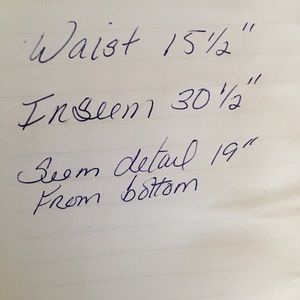 Waist 15½"
Inseem 30½"
Seem detail 19"
From bottom